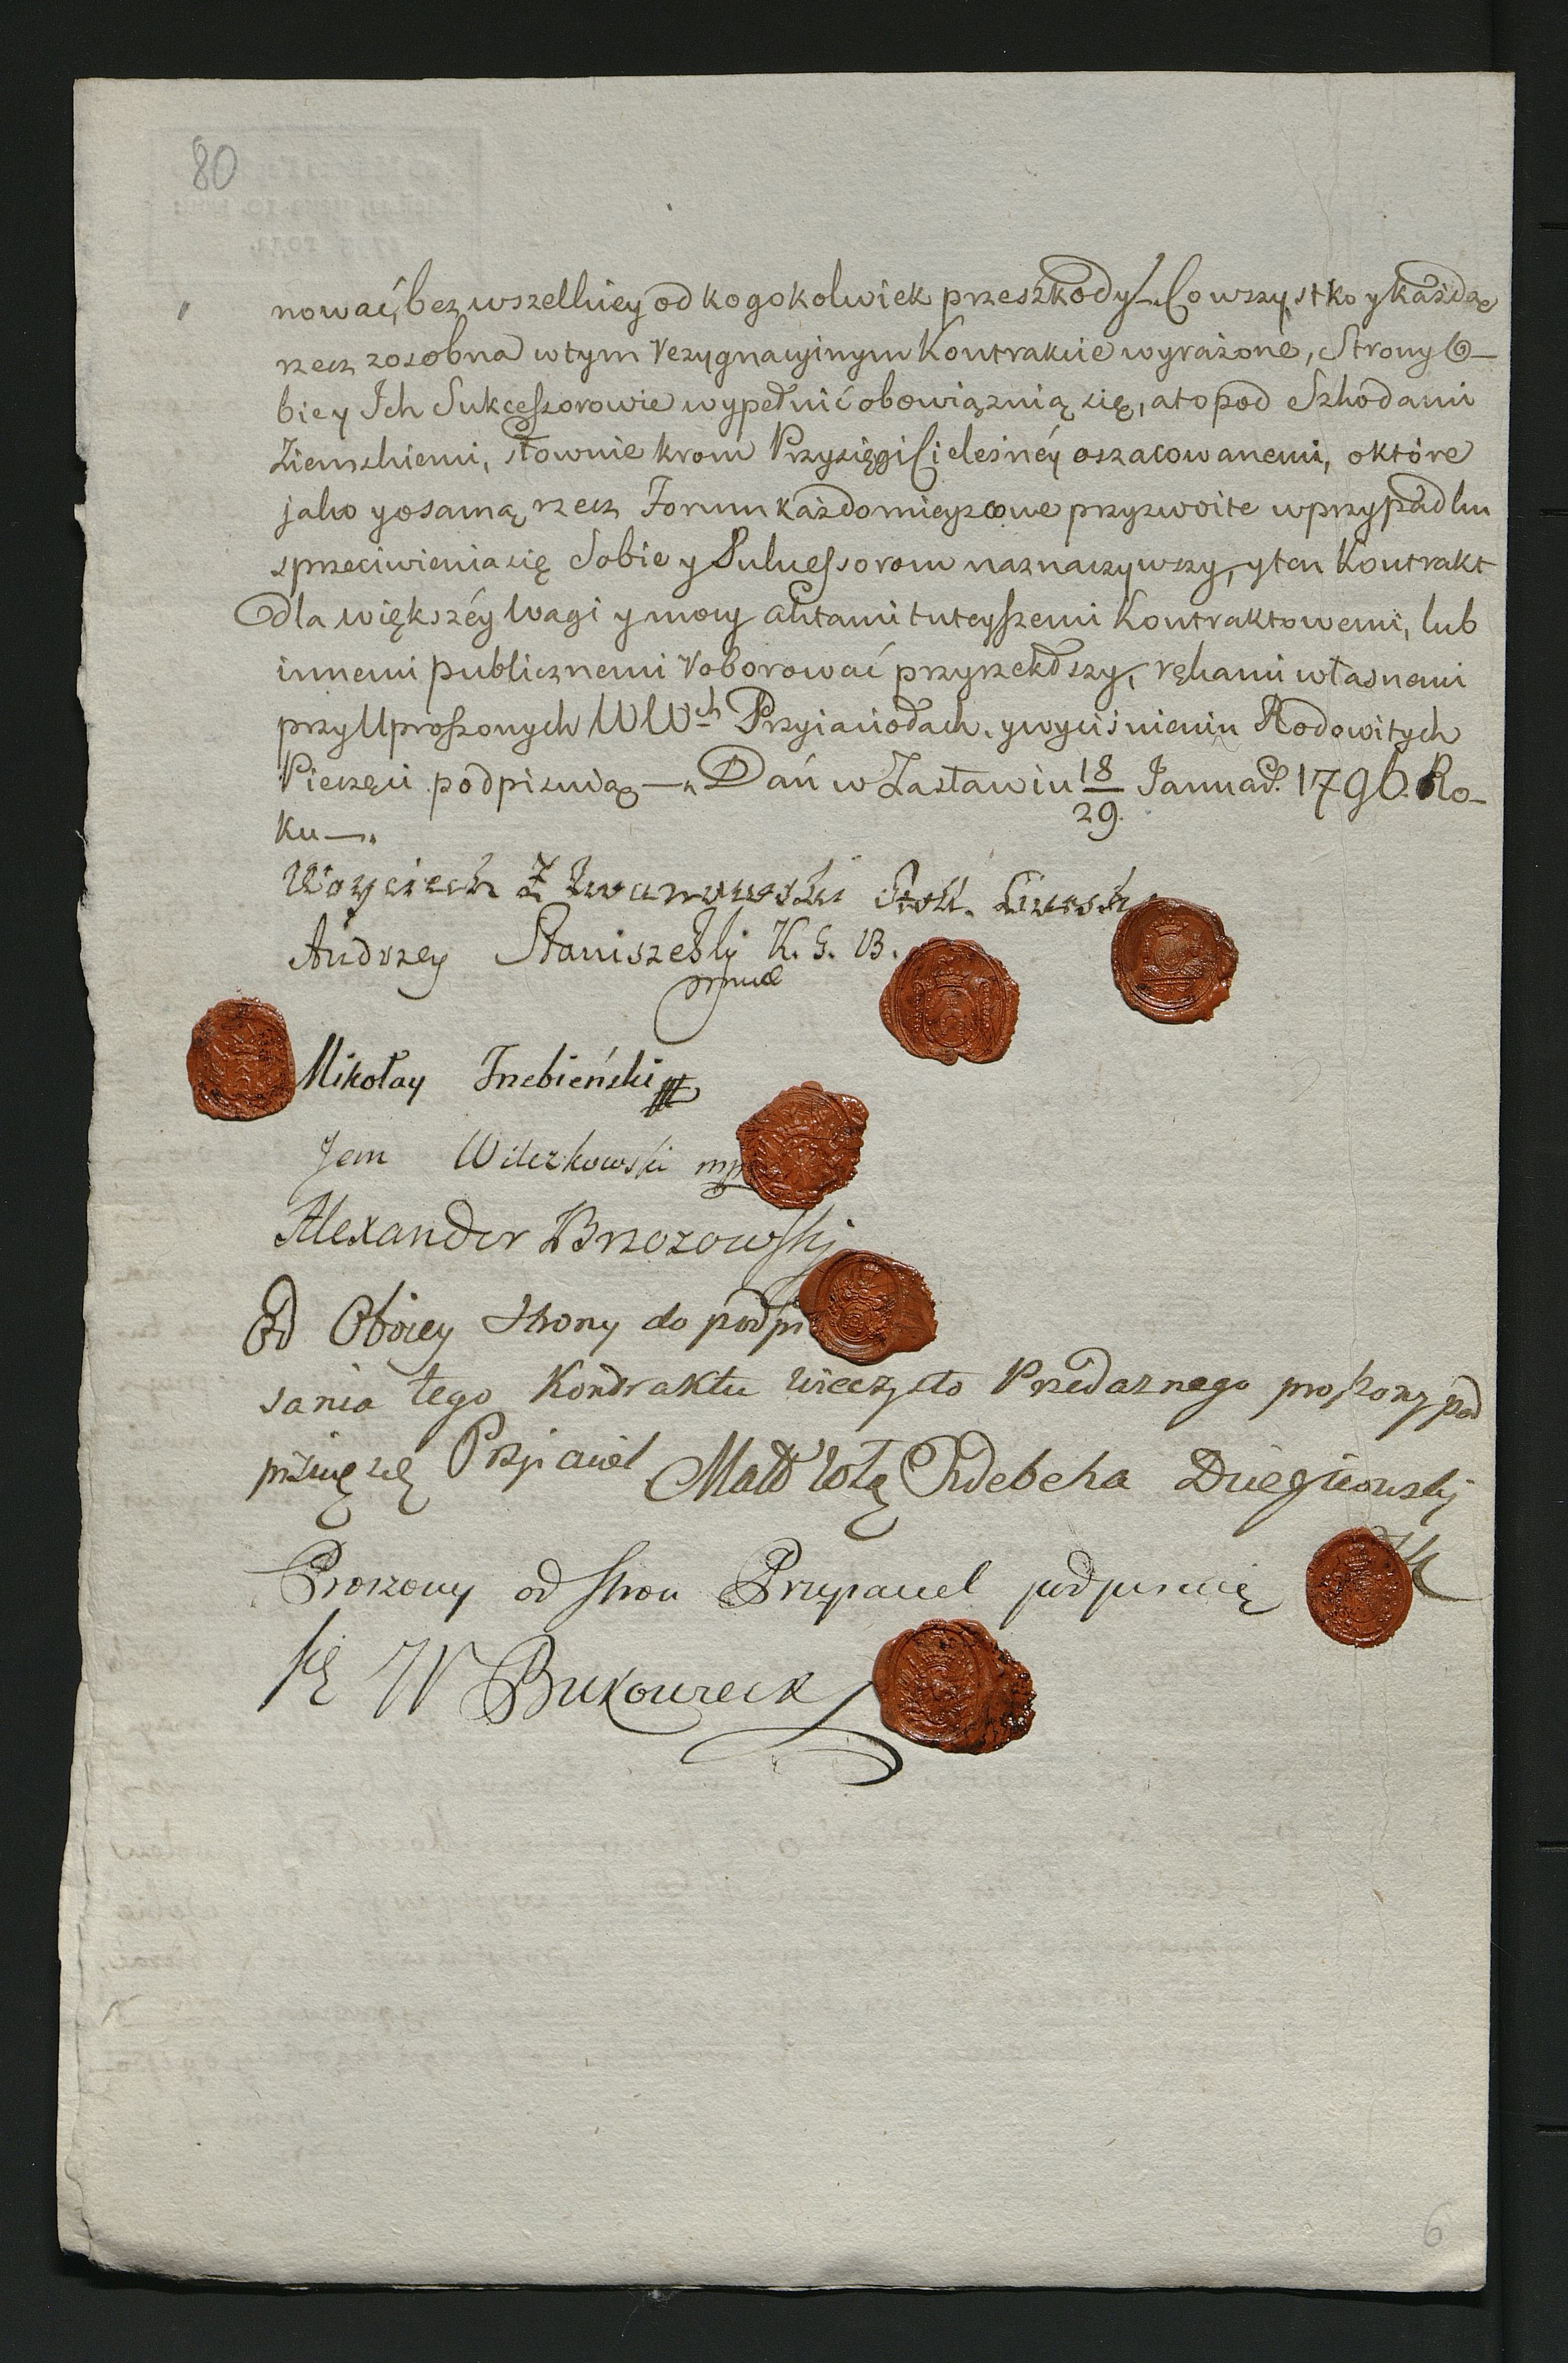 80
nować, bez wszelkiey od kogokolwiek przeszkody. Co wszystko y każdą
rzecz zosobna w tym rezygnacyinym Kontrakcie wyrażone, Strony O-
bie y Ich Sukcessorowie wypełnić obowiązuią się, a to pod Szkodami
Ziemskiemi, słownie krom Przysięgi Cielesnéy oszacowanemi, o które
jako y o samą rzecz Forum każdomieyscowe przyzwoite w przypadku
sprzeciwienia się Sobie y Sukcessorom naznaczywszy, y ten Kontrakt
dla większéy wagi y mocy Aktami tuteyszemi Kontraktowemi, lub
innemi publicznemi roborować przyrzekłszy, rękami własnemi
przy Uproszonych WWch Przyiaciołach, y wyciśnieniu Rodowitych
Pieczęci podpisuią —„ Dań w Zasławiu 18/29. Januar. 1796. Ro-
ku —„
Woyciech Iwanowski
Andrzey Staniszewski K. G. B.
mp
Mikołay Trzebieński
Jan Wilczkowski mp
Alexander Brzozowski
Od Oboiey Strony do podpi
sania tego Kondraktu wieczysto Przedaznego proszony pod
pisuię się Przyiaciel
Proszony od stron Przyiaciel podpisuię
się W Bukowieck
6